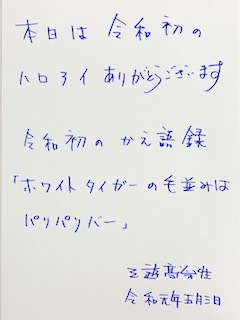 本日は 令和初の
ハロアイ ありがとうございます
令和初の かえ語録
「ホワイトタイガーの毛並みは
パリパリバー」
令和元年五月三日